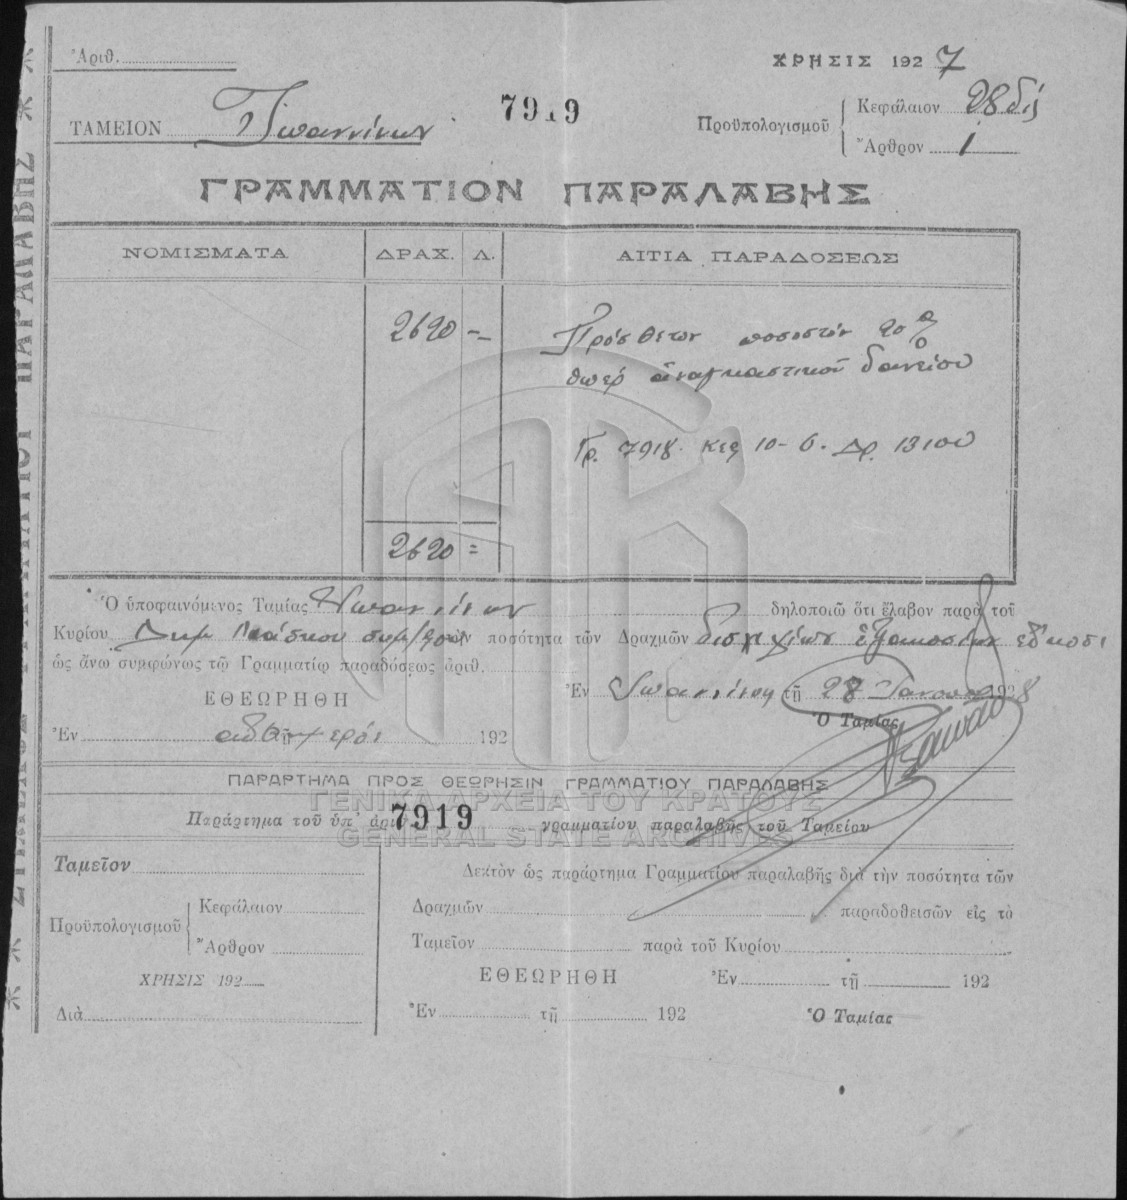 Ἀριθ.
ΧΡΗΣΙΣ 1927
ΤΑΜΕΙΟΝ Ἰωαννίνων
7919
Προϋπολογισμοῦ Κεφάλαιον 28 δὶς
Ἄρθρον 1
ΓΡΑΜΜΑΤΙΟΝ ΠΑΡΑΛΑΒΗΣ
ΝΟΜΙΣΜΑΤΑ ΔΡΑΧ. Λ. ΑΙΤΙΑ ΠΑΡΑΔΟΣΕΩΣ
2620 = Πρόσθετον ποσοστὸν 20%
ὑπὲρ ἀναγκαστικοῦ δανείου
Γρ. 7918 Κες 10-6. Δρ. 13100
2620 =
Ὁ ὑποφαινόμενος Ταμίας Ἰωαννίνων δηλοποιῶ ὅτι ἔλαβον παρὰ τοῦ
Κυρίου Δημ. ποσότητα τῶν Δραχμῶν δισχιλίων ἑξακοσίων εἴκοσι
ὡς ἄνω συμφώνως τῷ Γραμματίῳ παραδόσεως ἀριθ.
Ἐν Ἰωαννίνοις τῇ 28 1928
ΕΘΕΩΡΗΘΗ
Ὁ Ταμίας
Ἐν αὐθημερὸν τῇ 192
ΠΑΡΑΡΤΗΜΑ ΠΡΟΣ ΘΕΩΡΗΣΙΝ ΓΡΑΜΜΑΤΙΟΥ ΠΑΡΑΛΑΒΗΣ
ΓΕΝΙΚΑ ΑΡΧΕΙΑ ΤΟΥ ΚΡΑΤΟΥΣ
Παράρτημα τοῦ ὑπ' ἀρι 7919 γραμματίου παραλαβῆς τοῦ Ταμείου
GENERAL STATE ARCHIVES
Ταμεῖον
Προϋπολογισμοῦ Κεφάλαιον
Ἄρθρον
ΧΡΗΣΙΣ 192
Διὰ
Δεκτὸν ὡς παράρτημα Γραμματίου παραλαβῆς διὰ τὴν ποσότητα τῶν
Δραχμῶν παραδοθεισῶν εἰς τὸ
Ταμεῖον παρὰ τοῦ Κυρίου
ΕΘΕΩΡΗΘΗ Ἐν τῇ 192
Ἐν τῇ 192 Ὁ Ταμίας